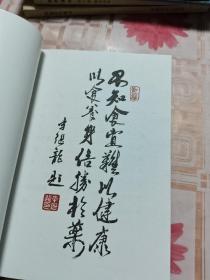 不知食宜難以健康
以食養身倍勝於藥
龍题